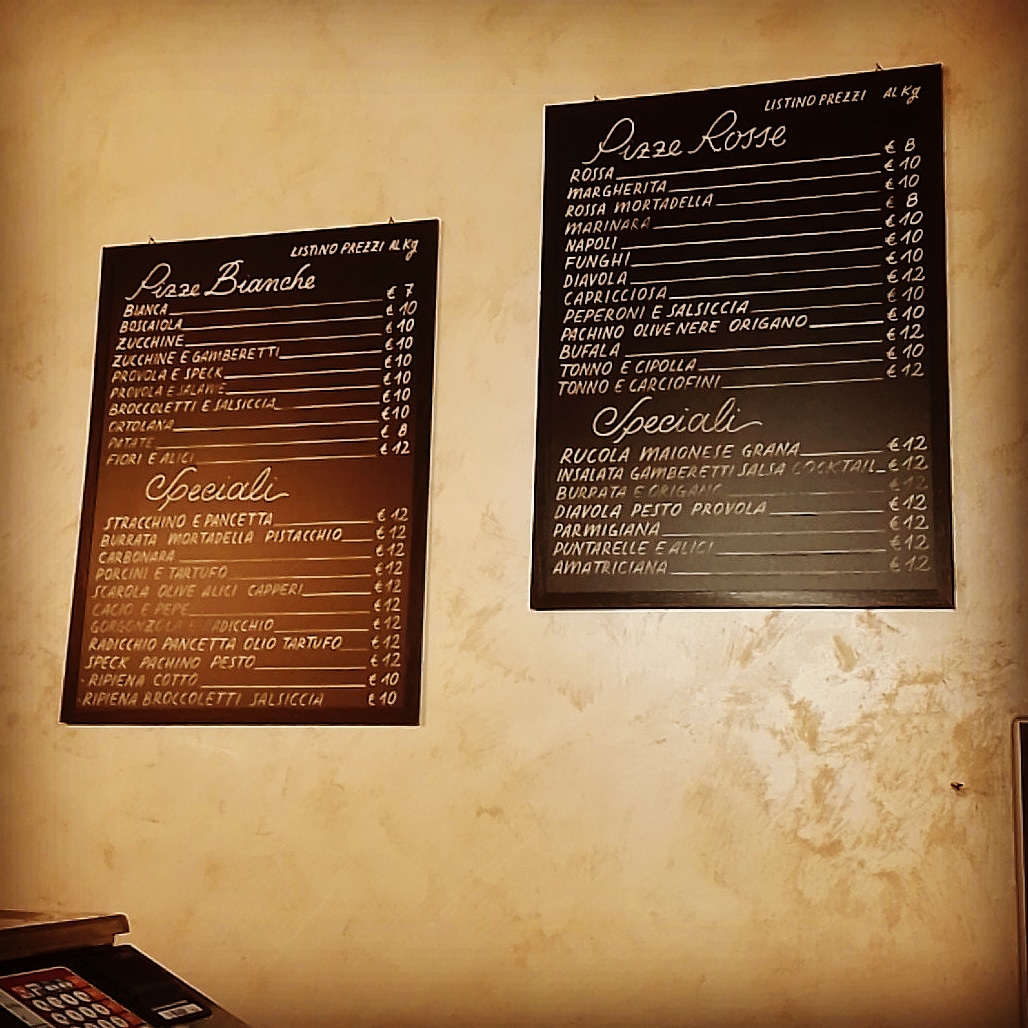 LISTINO PREZZI AL Kg
Pizze Bianche
BIANCA € 7
BOSCAIOLA € 10
ZUCCHINE € 10
ZUCCHINE E GAMBERETTI € 10
PROVOLA E SPECK € 10
PROVOLA E SALAME € 10
BROCCOLETTI E SALSICCIA € 10
ORTOLANA € 10
PATATE € 8
FIORI E ALICI € 12
Speciali
STRACCHINO E PANCETTA € 12
BURRATA MORTADELLA PISTACCHIO € 12
CARBONARA € 12
PORCINI E TARTUFO € 12
SCAROLA OLIVE ALICI CAPPERI € 12
CACIO E PEPE € 12
GORGONZOLA E RADICCHIO € 12
RADICCHIO PANCETTA OLIO TARTUFO € 12
SPECK PACHINO PESTO € 12
- RIPIENA COTTO € 10
- RIPIENA BROCCOLETTI SALSICCIA € 10
LISTINO PREZZI AL Kg
Pizze Rosse
ROSSA € 8
MARGHERITA € 10
ROSSA MORTADELLA € 10
MARINARA € 8
NAPOLI € 10
FUNGHI € 10
DIAVOLA € 10
CAPRICCIOSA € 12
PEPERONI E SALSICCIA € 10
PACHINO OLIVE NERE ORIGANO € 10
BUFALA € 12
TONNO E CIPOLLA € 10
TONNO E CARCIOFINI € 12
Speciali
RUCOLA MAIONESE GRANA € 12
INSALATA GAMBERETTI SALSA COCKTAIL € 12
BURRATA E ORIGANO € 12
DIAVOLA PESTO PROVOLA € 12
PARMIGIANA € 12
PUNTARELLE E ALICI € 12
AMATRICIANA € 12